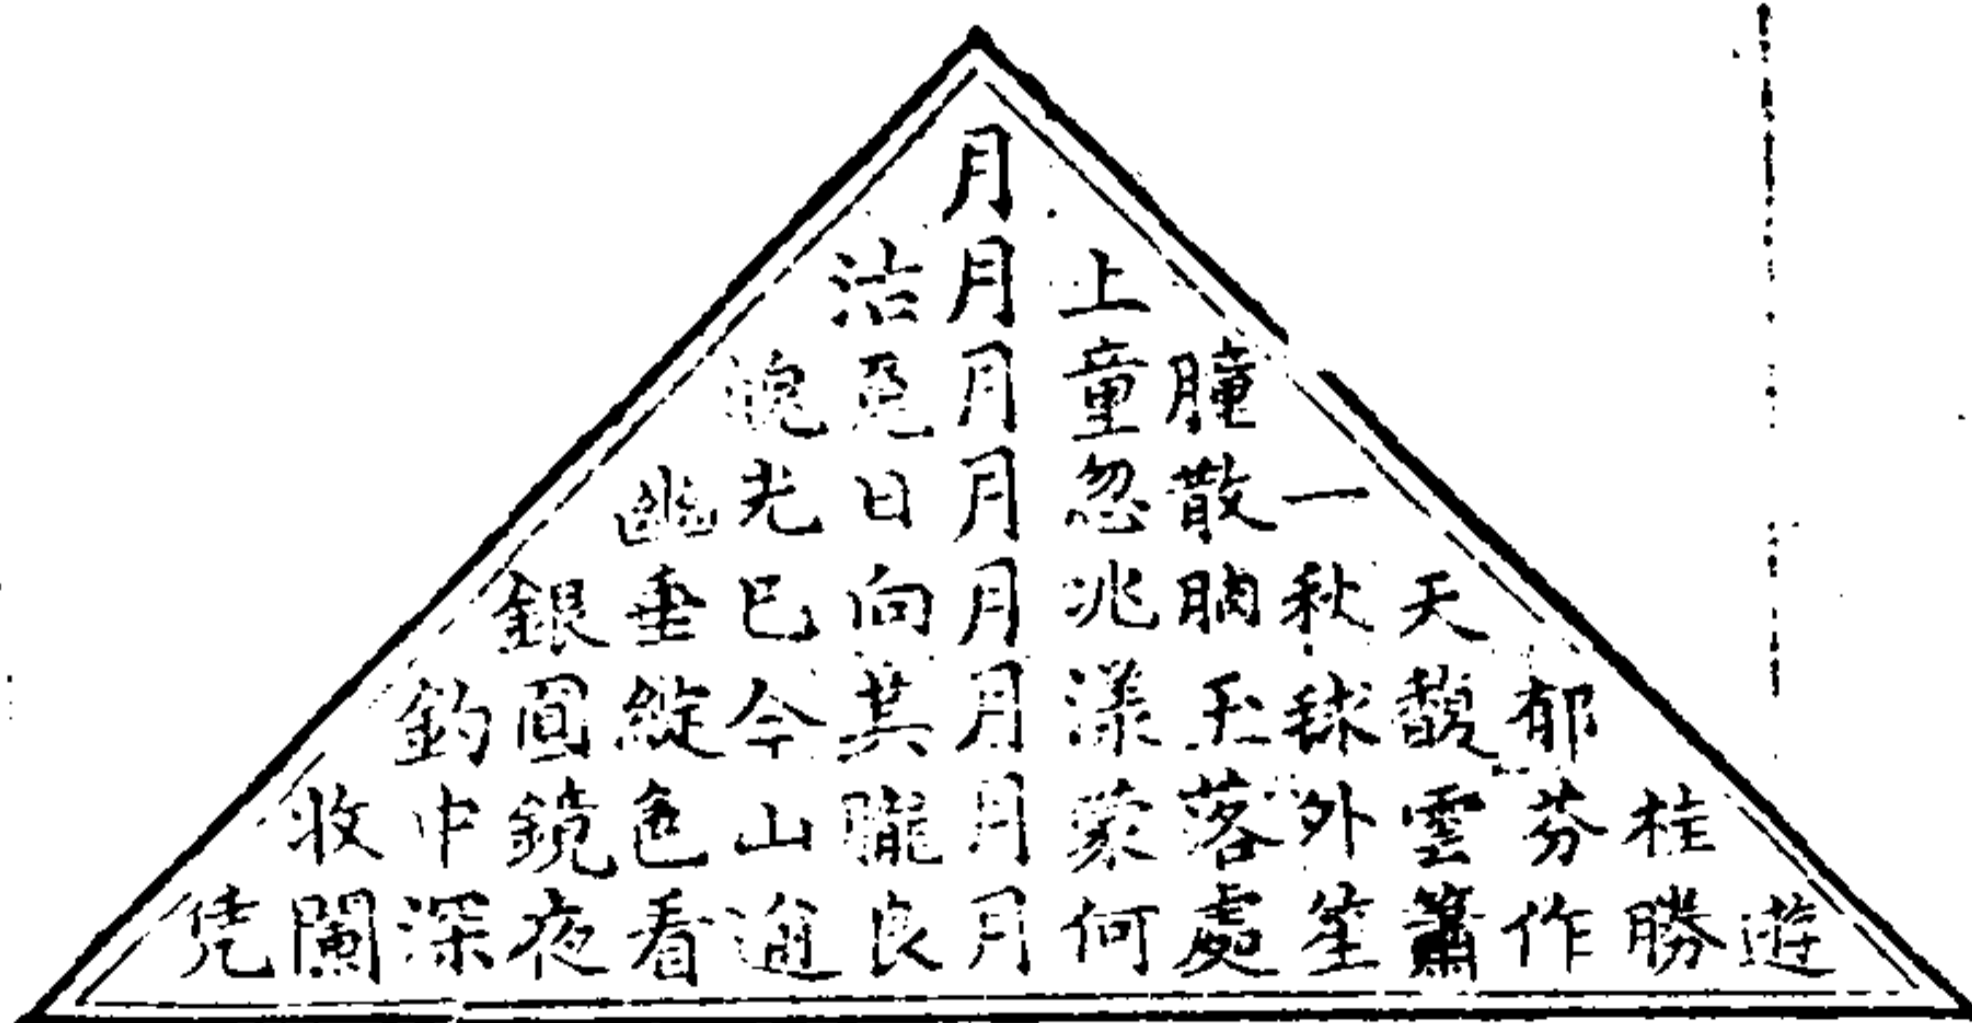 月
沽月上
月童朣
幽光日月忽散一
銀垂已向月兆朒秋天
鈎圓綻今其月漾玉毬馥郁
收中鏡色山朧月蒙落外雲芬桂
凭闌深夜看逈良月何處笙簫作勝遊